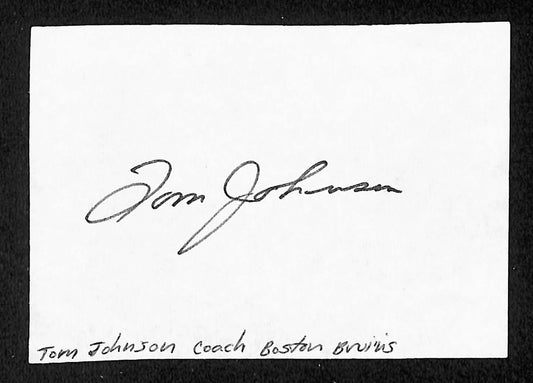 Tom Johnson
Tom Johnson Coach Boston Bruins